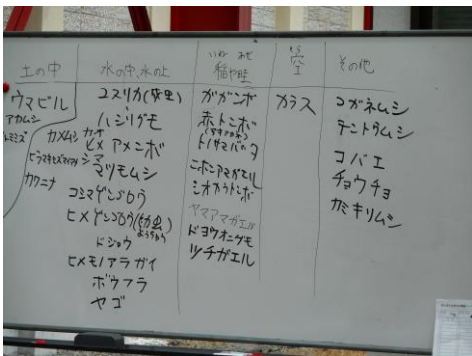 土の中
ウマビル
アカムシ
トミミズ
カメムシ
ヒラマキミズマイマイ
カワニナ
水の中、水の上
ユスリカ(幼虫)
ハシリグモ
ヒメアメンボ
マツモムシ
コシマゲンゴロウ
ヒメゲンゴロウ(幼虫)
ようちゅう
ドジョウ
ヒメモノアラガイ
ボウフラ
ヤゴ
いね あぜ
稲や畦
ガガンボ
赤トンボ
トノサマバッタ
ニホンアマガエル
シオカラトンボ
ヤマアカガエル
ドヨウオニグモ
ツチガエル
そら
空
カラス
その他
コガネムシ
テントウムシ
コバエ
チョウチョ
カミキリムシ